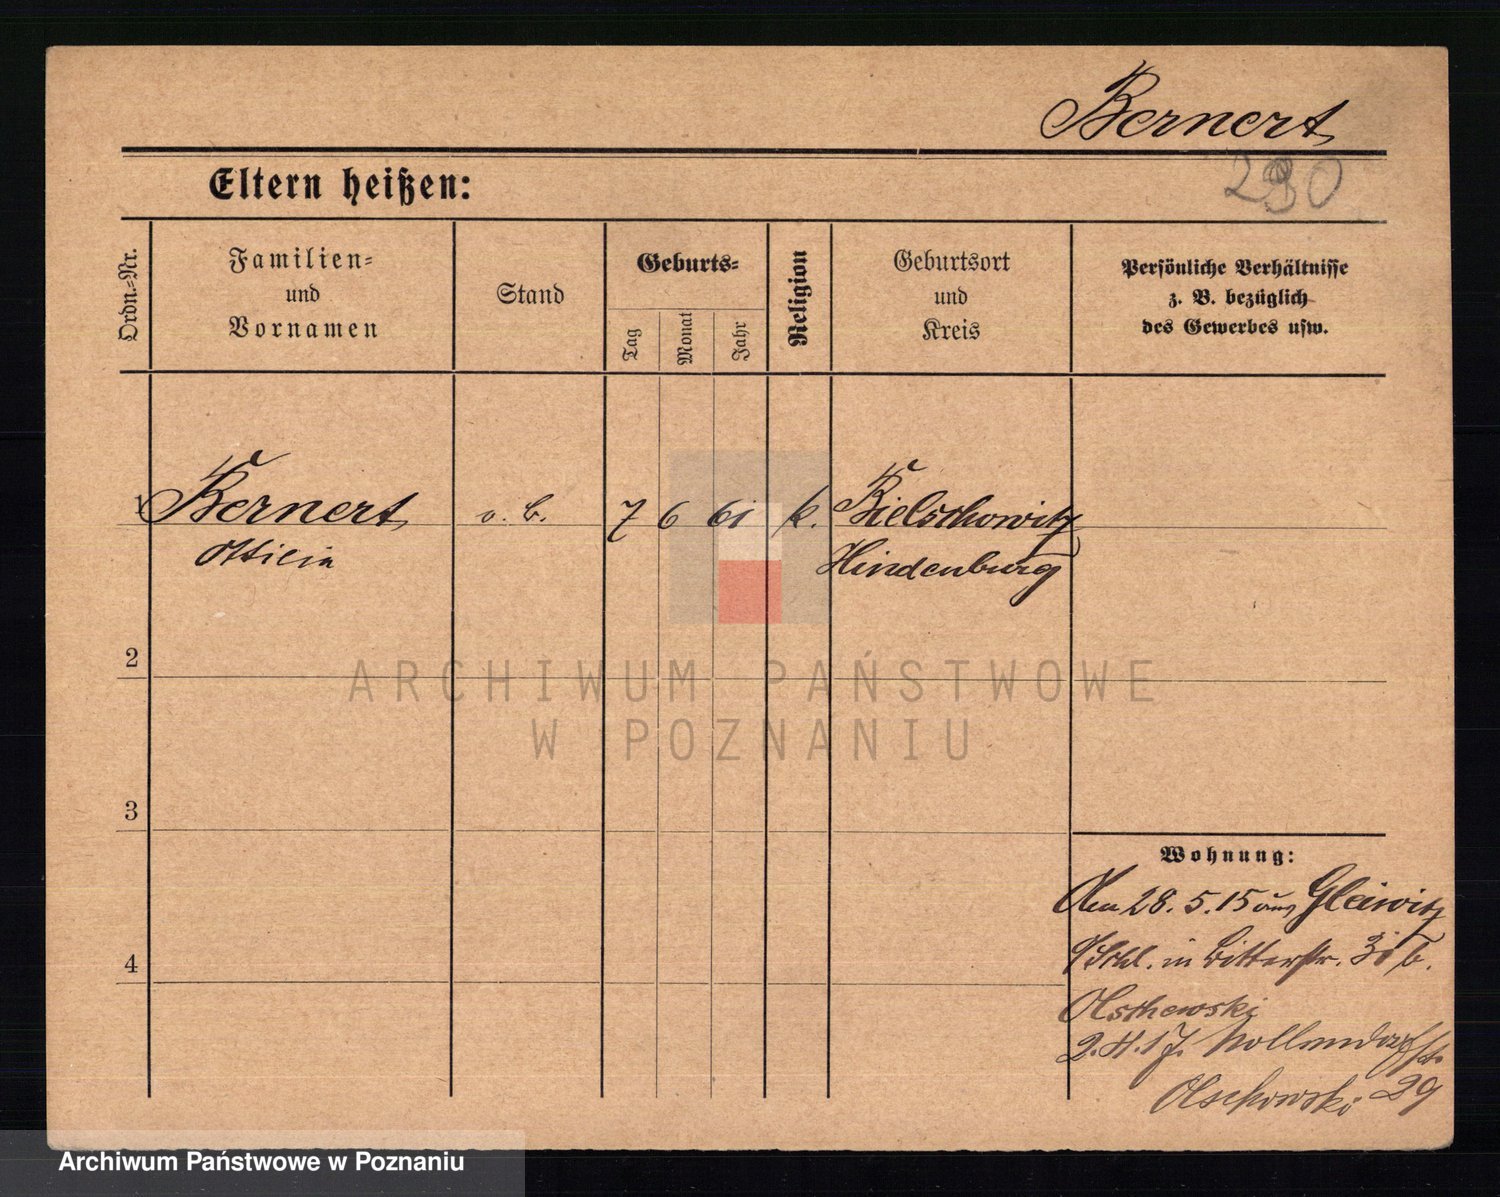 Bernert
290
Eltern heißen:
Ordn.-Nr.
Familien-
und
Vornamen
Stand
Geburts-
Tag
Monat
Jahr
Religion
Geburtsort
und
Kreis
Persönliche Verhältnisse
z. B. bezüglich
des Gewerbes usw.
1 Bernert o. B. 7 6 61 k. Bielschowitz
Ottilie Hindenburg
2
3
4
Wohnung:
28. 5. 15 aus Gleiwitz
O/Schl. in Ritterstr. 36 b.
Olschewski
2. 4. 17. Nollendorfstr.
Olschewski 29
ARCHIWUM PAŃSTWOWE
W POZNANIU
Archiwum Państwowe w Poznaniu